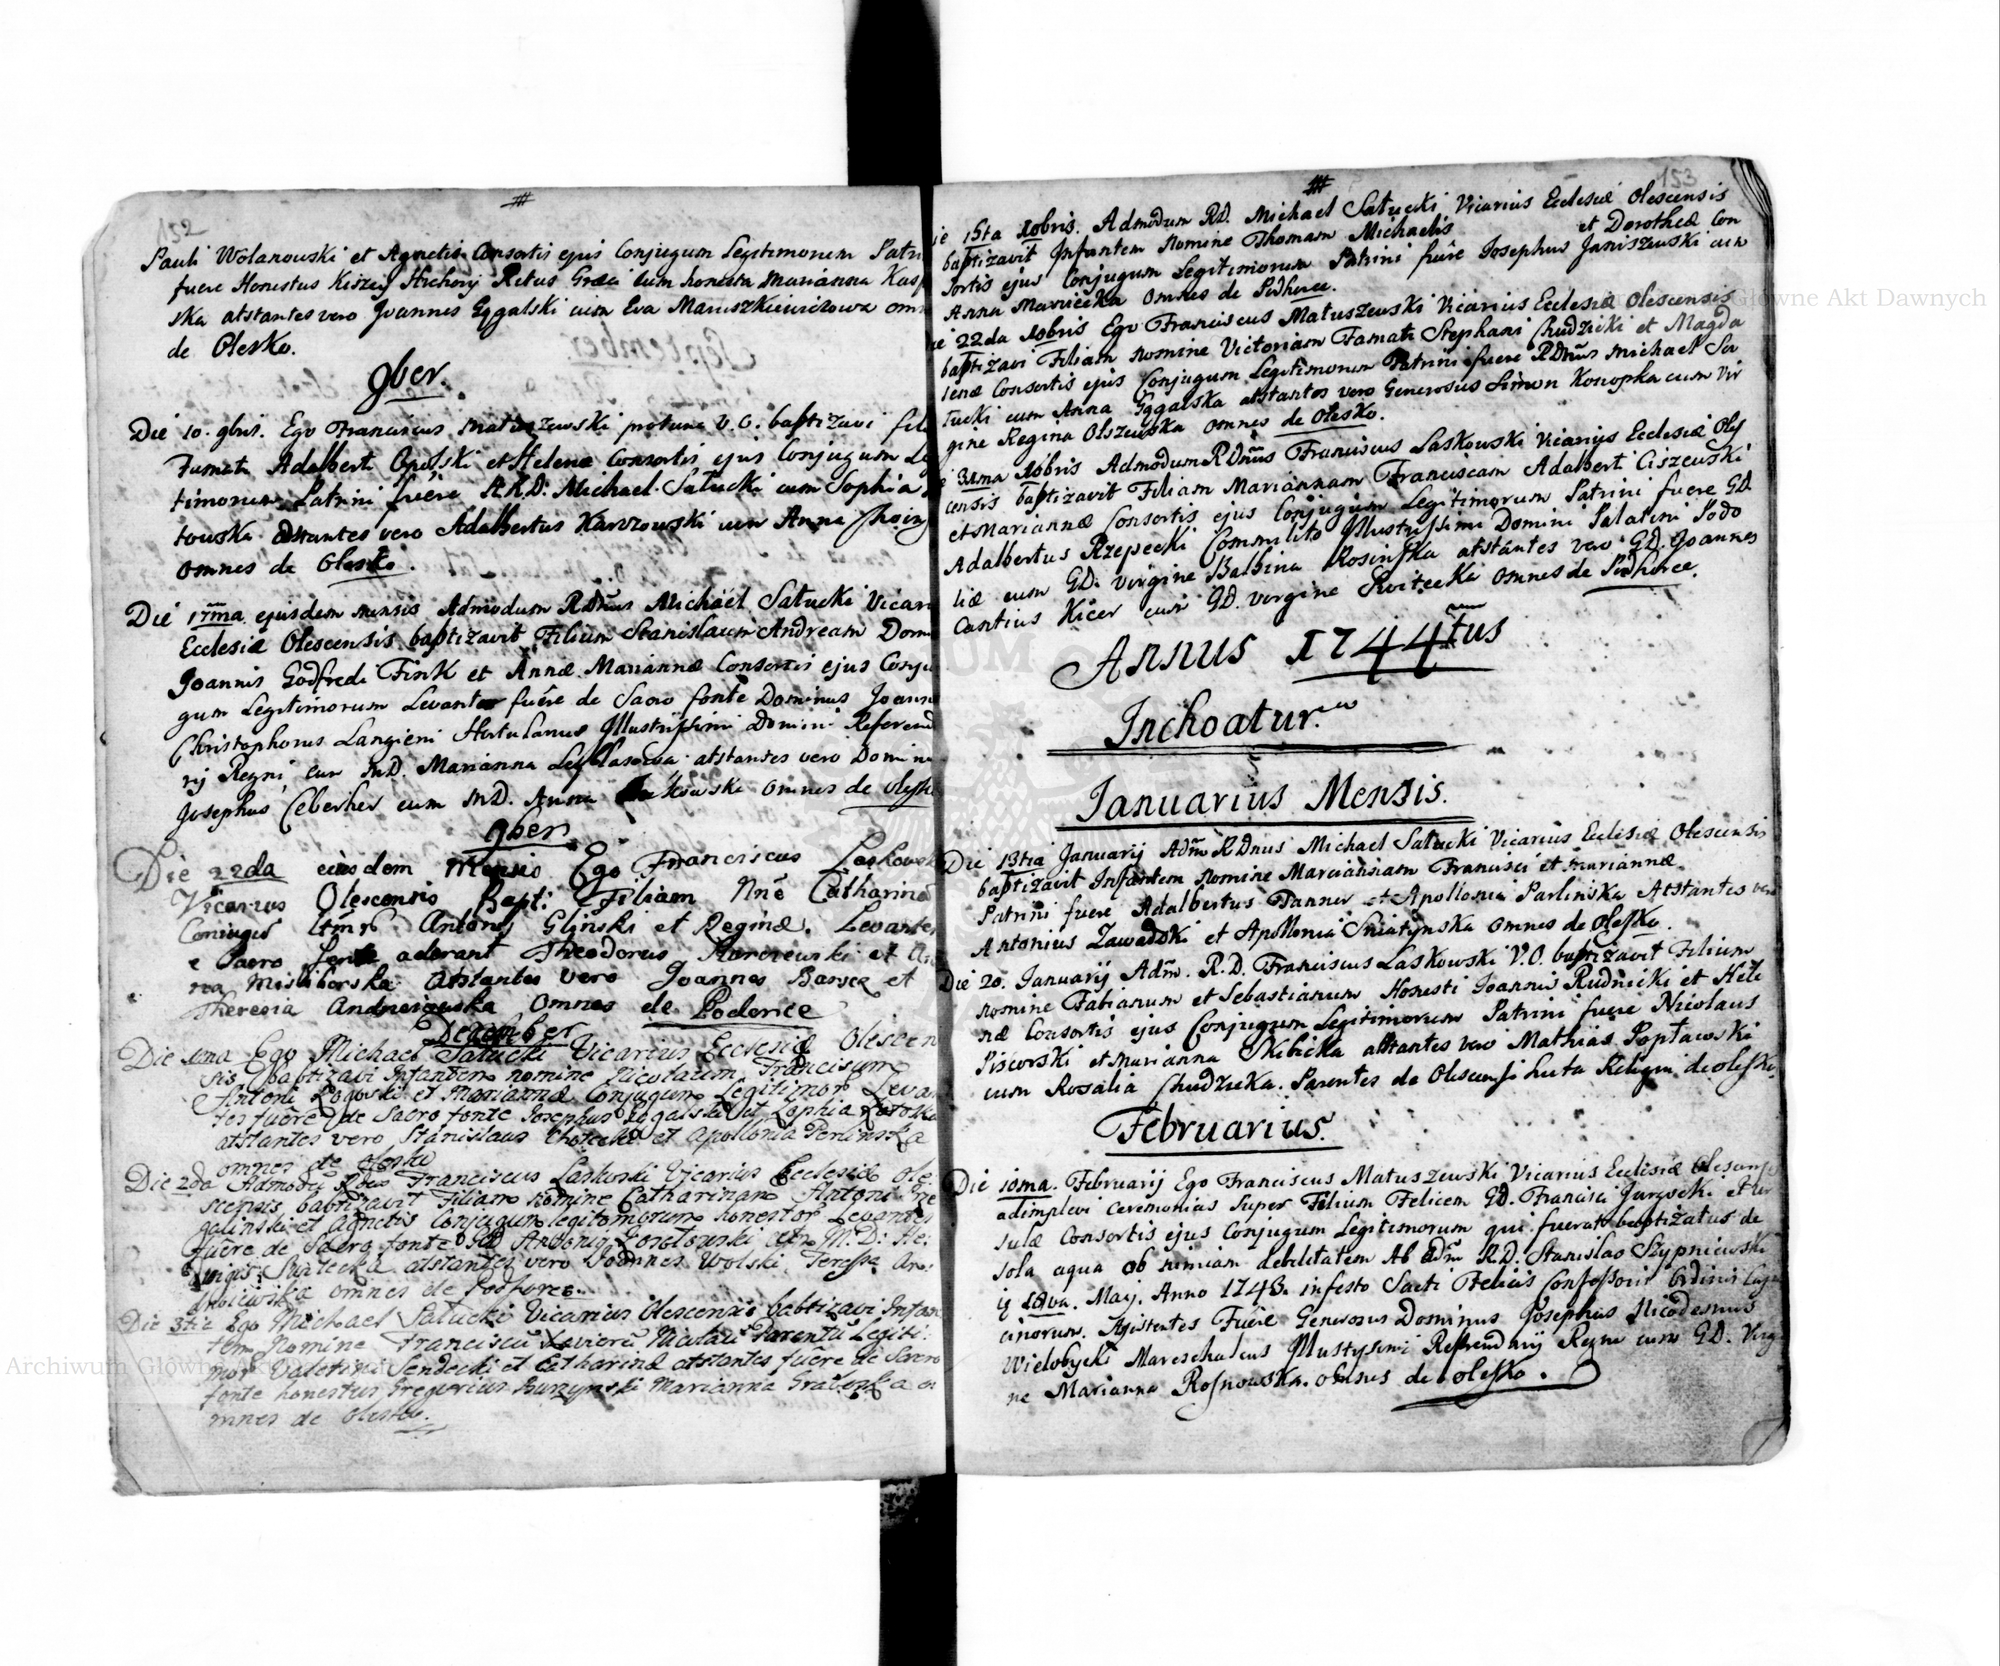 152
Pauli Wolanowski et Agnetis Consortis ejus Conjugum Legitimorum Patri
fuere Honestus Hrehory Ritus Græci cum honesta Marianna Kasp
ska atstantes vero Joannes Gągalski cum Eva Maruszkiewiczowa omn
de Olesko.
9ber.
Die 10. 9bris. Ego Franciscus Matuszewski protunc V. O. baptizavi fili
Famati Adalberti Opolski et Helenæ Consortis ejus Conjugum Le
timorum Patrini fuêre A.R.D: Michael Satucki cum Sophia
towska atstantes vero Adalbertus Karczowski cum Anna
omnes de Olesko.
Die 17ma ejusdem mensis Admodum RDnus Michaël Satucki Vicari
Ecclesiæ Olescensis baptizavit Filium Stanislaum Andream Domi
Joannis Godfredi Fink et Annæ Mariannæ Consortis ejus Conju
gum Legitimorum Levantes fuêre de Sacro fonte Dominus Joann
Christophorus Langieni Hortulanus Illustrissimi Domini Referend
rij Regni, cum MD. Marianna atstantes vero Domin
Josephus Ceberher cum MD. Anna omnes de olesko
9ber
Die 22da eiusdem Mensis Ego Franciscus Laskowsk
Vicarius Olescensis Bapt: Filiam Nne Catharina
Coniugũ Antonij Glinski et Reginæ. Levantes
e Sacro fonte aderant Theodorus et An
na Misliborska atstantes vero Joannes et
Theresia Andrusiowska Omnes de Podorice
December
Die 1ma Ego Michael Satucki Vicarius Ecclesiæ Olescen
sis baptizavi Infantem nomine Nicolaum Franciscum
Antoni Rogowski et Mariannæ Conjugum Legitimor Levan
tes fuêre de Sacro fonte Josephus Gągalski et Zophia
atstantes vero Stanislaus et Apollonia Perlinska
omnes de olesko
Die 2da Admodũ Rdus Franciscus Laskoski Vicarius Ecclesiæ Ole:
scensis babtizavit Filiam Nomine Catharinam Antoni
galinski et Agnetis Conjugum legitomorum honestor Levantes
fuêre de Sacro fonte GD Antonij cum M. D: He:
wigis atstantes vero Joannes Wolski, Teressa An:
drusiewska omnes de Podhorce.
Die 3tia Ego Michael Satucki Vicarius Olescensis babtizavi Infan
tem Nomine Franciscũ Xaverũ Parentũ Legiti:
mor Valentini Sendecki et Catharinæ atstantes fuêre de Sacro
fonte honestus Gregorius Burzynski Marianna o
mnes de olesko.
153
ie 15ta 10bris. Admodum RD. Michael Satucki Vicarius Ecclesiæ Olescensis
baptizavit Infantem Nomine Thomam Michaelis et Dorotheæ Con
sortis ejus Conjugum Legitimorum Patrini fuêre Josephus Janiszewski cum
Anna Maricέka omnes de Podhorce.
ie 22da 10bris Ego Franciscus Matuszewski Vicarius Ecclesiæ Olescensis
baptizavi Filiam Nomine Victoriam Famati Stephani Chudzicki et Magda
lenæ Consortis ejus Conjugum Legitimorum Patrini fuere RDnus Michael Sa
tucki cum Anna Gągalska atstantes vero Generosus Simon Konopka cum Vir
gine Regina Olszewska omnes de Olesko.
31ma 10bris Admodum RDnus Franciscus Laskowski Vicarius Ecclesiæ Oles
censis baptizavit Filiam Mariannam Franciscam Adalberti Ciszewski
et Mariannæ Consortis ejus Conjugum Legitimorum Patrini fuere GD.
Adalbertus Rzepecki Commilito Illustrissimi Domini Palatini Podo
liæ cum GD. virgine Balbina Rosinska atstantes vero GD. Joannes
Cantius Kicer cum GD. virgine Switecka omnes de Podhorce.
Annus 1744tus
Inchoatur.
Ianuarius Mensis.
Die 13tia Januarij Adm RDnus Michael Satucki Vicarius Ecclesiæ Olescensis
baptizavit Infantem Nomine Marciannam Francisci et Mariannæ
Patrini fuere Adalbertus Tanner et Apollonia Parlinska Atstantes vero
Antonius Zawadzki et Apollonia Sniatynska omnes de olesko.
Die 20. Januarij Adm. R.D. Franciscus Laskowski V.O. baptizavit Filium
Nomine Fabianum et Sebastianum Honesti Joannis Rudnicki et Hele
næ Consortis ejus Conjugum Legitimorum Patrini fuere Nicolaus
Piscorski et Marianna Skibicka atstantes vero Mathias Poptawski
cum Rosalia Chudzicka. Parentes de Olescensi huta Reliqui de olesko.
Februarius.
Die 10ma. Februarij Ego Franciscus Matuszewski Vicarius Ecclesiæ Olescensis
adimplevi ceremonias super Filium Felicem GD. Francisci et Ur
sulæ Consortis ejus Conjugum Legitimorum qui fuerat baptizatus de
sola aqua ob nimiam debilitatem Ab Adm R.D. Stanislao Szypniewski
Maij. Anno 1743. in festo Sacti Felicis Confessoris Ordinis Capu
cinorum. Assistentes Fuêre Generosus Dominus Josephus Nicodemus
Wielobycki Mareschalcus Illustrissimi Referendarij Regni cum GD. Virgi
ne Marianna Rosnowska. omnes de olesko.
Archiwum Główne Akt Dawnych